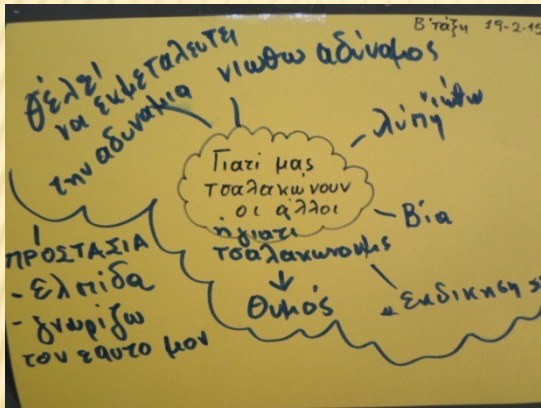 Β΄ τάξη 19-2-15
θέλει
να εκμεταλευτεί
την αδυναμία
νιώθω αδύναμος
λύπη νιώθω
Γιατί μας
τσαλακώνουν
οι άλλοι
ή γιατί
τσαλακωνουμε
Βία
Θυμός
"εκδικηση
ΠΡΟΣΤΑΣΙΑ
- Ελπίδα
- γνωρίζω
τον εαυτο μου